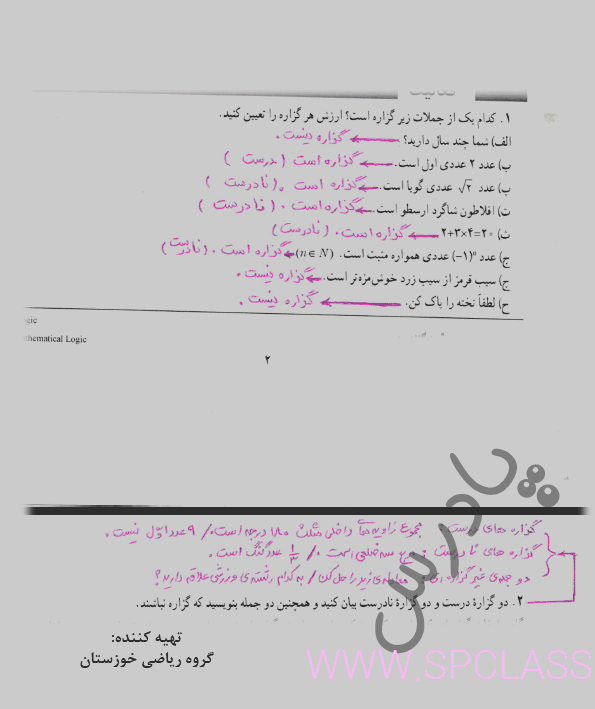 ۱. کدام یک از جملات زیر گزاره است؟ ارزش هر گزاره را تعیین کنید.
الف) شما چند سال دارید؟ گزاره نیست.
ب) عدد ۲ عددی اول است. گزاره است (درست)
پ) عدد √۲ عددی گویا است. گزاره است. (نادرست)
ت) افلاطون شاگرد ارسطو است. گزاره است. (نادرست)
ث) ۲+۳×۴=۲۰ گزاره است. (نادرست)
ج) عدد (−۱)ⁿ عددی همواره مثبت است. (n∈N) گزاره است. (نادرست)
چ) سیب قرمز از سیب زرد خوش‌مزه‌تر است. گزاره نیست.
ح) لطفاً تخته را پاک کن. گزاره نیست.
Mathematical Logic
۲
گزاره های درست: مجموع زاویه های داخلی مثلث ۱۸۰ درجه است. / ۹ عدد اول نیست.
گزاره های نادرست: مربع سه ضلعی است. / ۱/۳ عدد گنگ است.
دو جمله‌ی غیر گزاره ای: معادله‌ی زیر را حل کن / به کدام رشته‌ی ورزشی علاقه دارید؟
۲. دو گزارهٔ درست و دو گزارهٔ نادرست بیان کنید و همچنین دو جمله بنویسید که گزاره نباشند.
پادرس
تهیه کننده:
گروه ریاضی خوزستان
WWW.SPCLASS